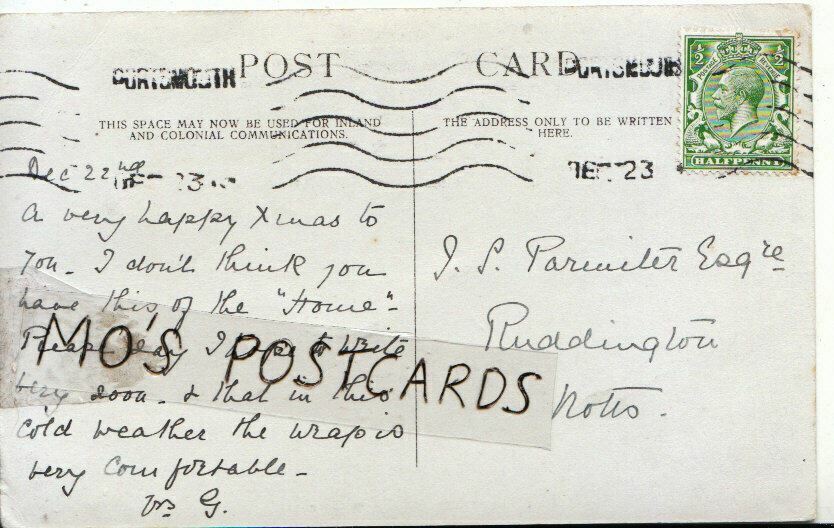 POST CARD
PORTSMOUTH
PORTSMOUTH
THIS SPACE MAY NOW BE USED FOR INLAND
AND COLONIAL COMMUNICATIONS.
THE ADDRESS ONLY TO BE WRITTEN
HERE.
½ ½
POSTAGE REVENUE
HALFPENNY
DEC 23
Dec 22nd
A very happy Xmas to
you - I don't think you
have this of the "Home" -
Please say I hope to write
very soon - & that in this
cold weather the wrap is
very comfortable -
Yrs G.
J. S. Parmiter Esqre
Ruddington
Notts.
MO'S POSTCARDS